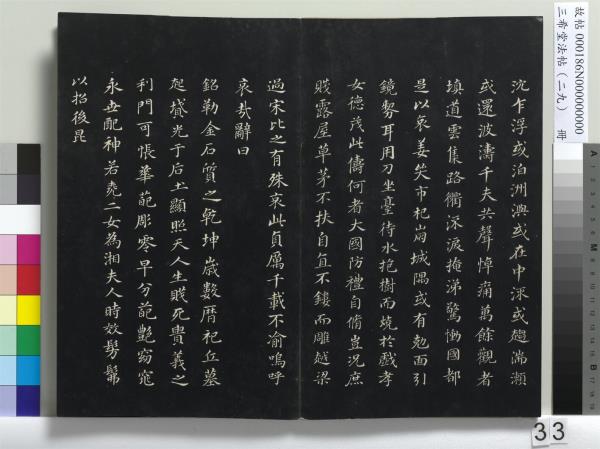 沈乍浮或泊洲嶼或在中流或趨湍瀨
或還波濤千夫共聲悼痛萬餘觀者
填道雲集路衢流淚掩涕驚慟國都
是以哀姜哭市杞崩城隅或有勀面引
鏡剺耳用刀坐臺待水抱樹而燒於戲孝
女德茂此儔何者大國防禮自脩豈況庶
賤露屋草茅不扶自直不鏤而雕越梁
過宋比之有殊哀此貞厲千載不渝嗚呼
哀哉辭曰
銘勒金石質之乾坤歲數曆祀丘墓
起墳光于后土顯照天人生賤死貴義之
利門何悵華葩彫零早分葩艷窈窕
永世配神若堯二女為湘夫人時效髣髴
以招後昆
故帖 000186N000000000
三希堂法帖(二九) 冊
33